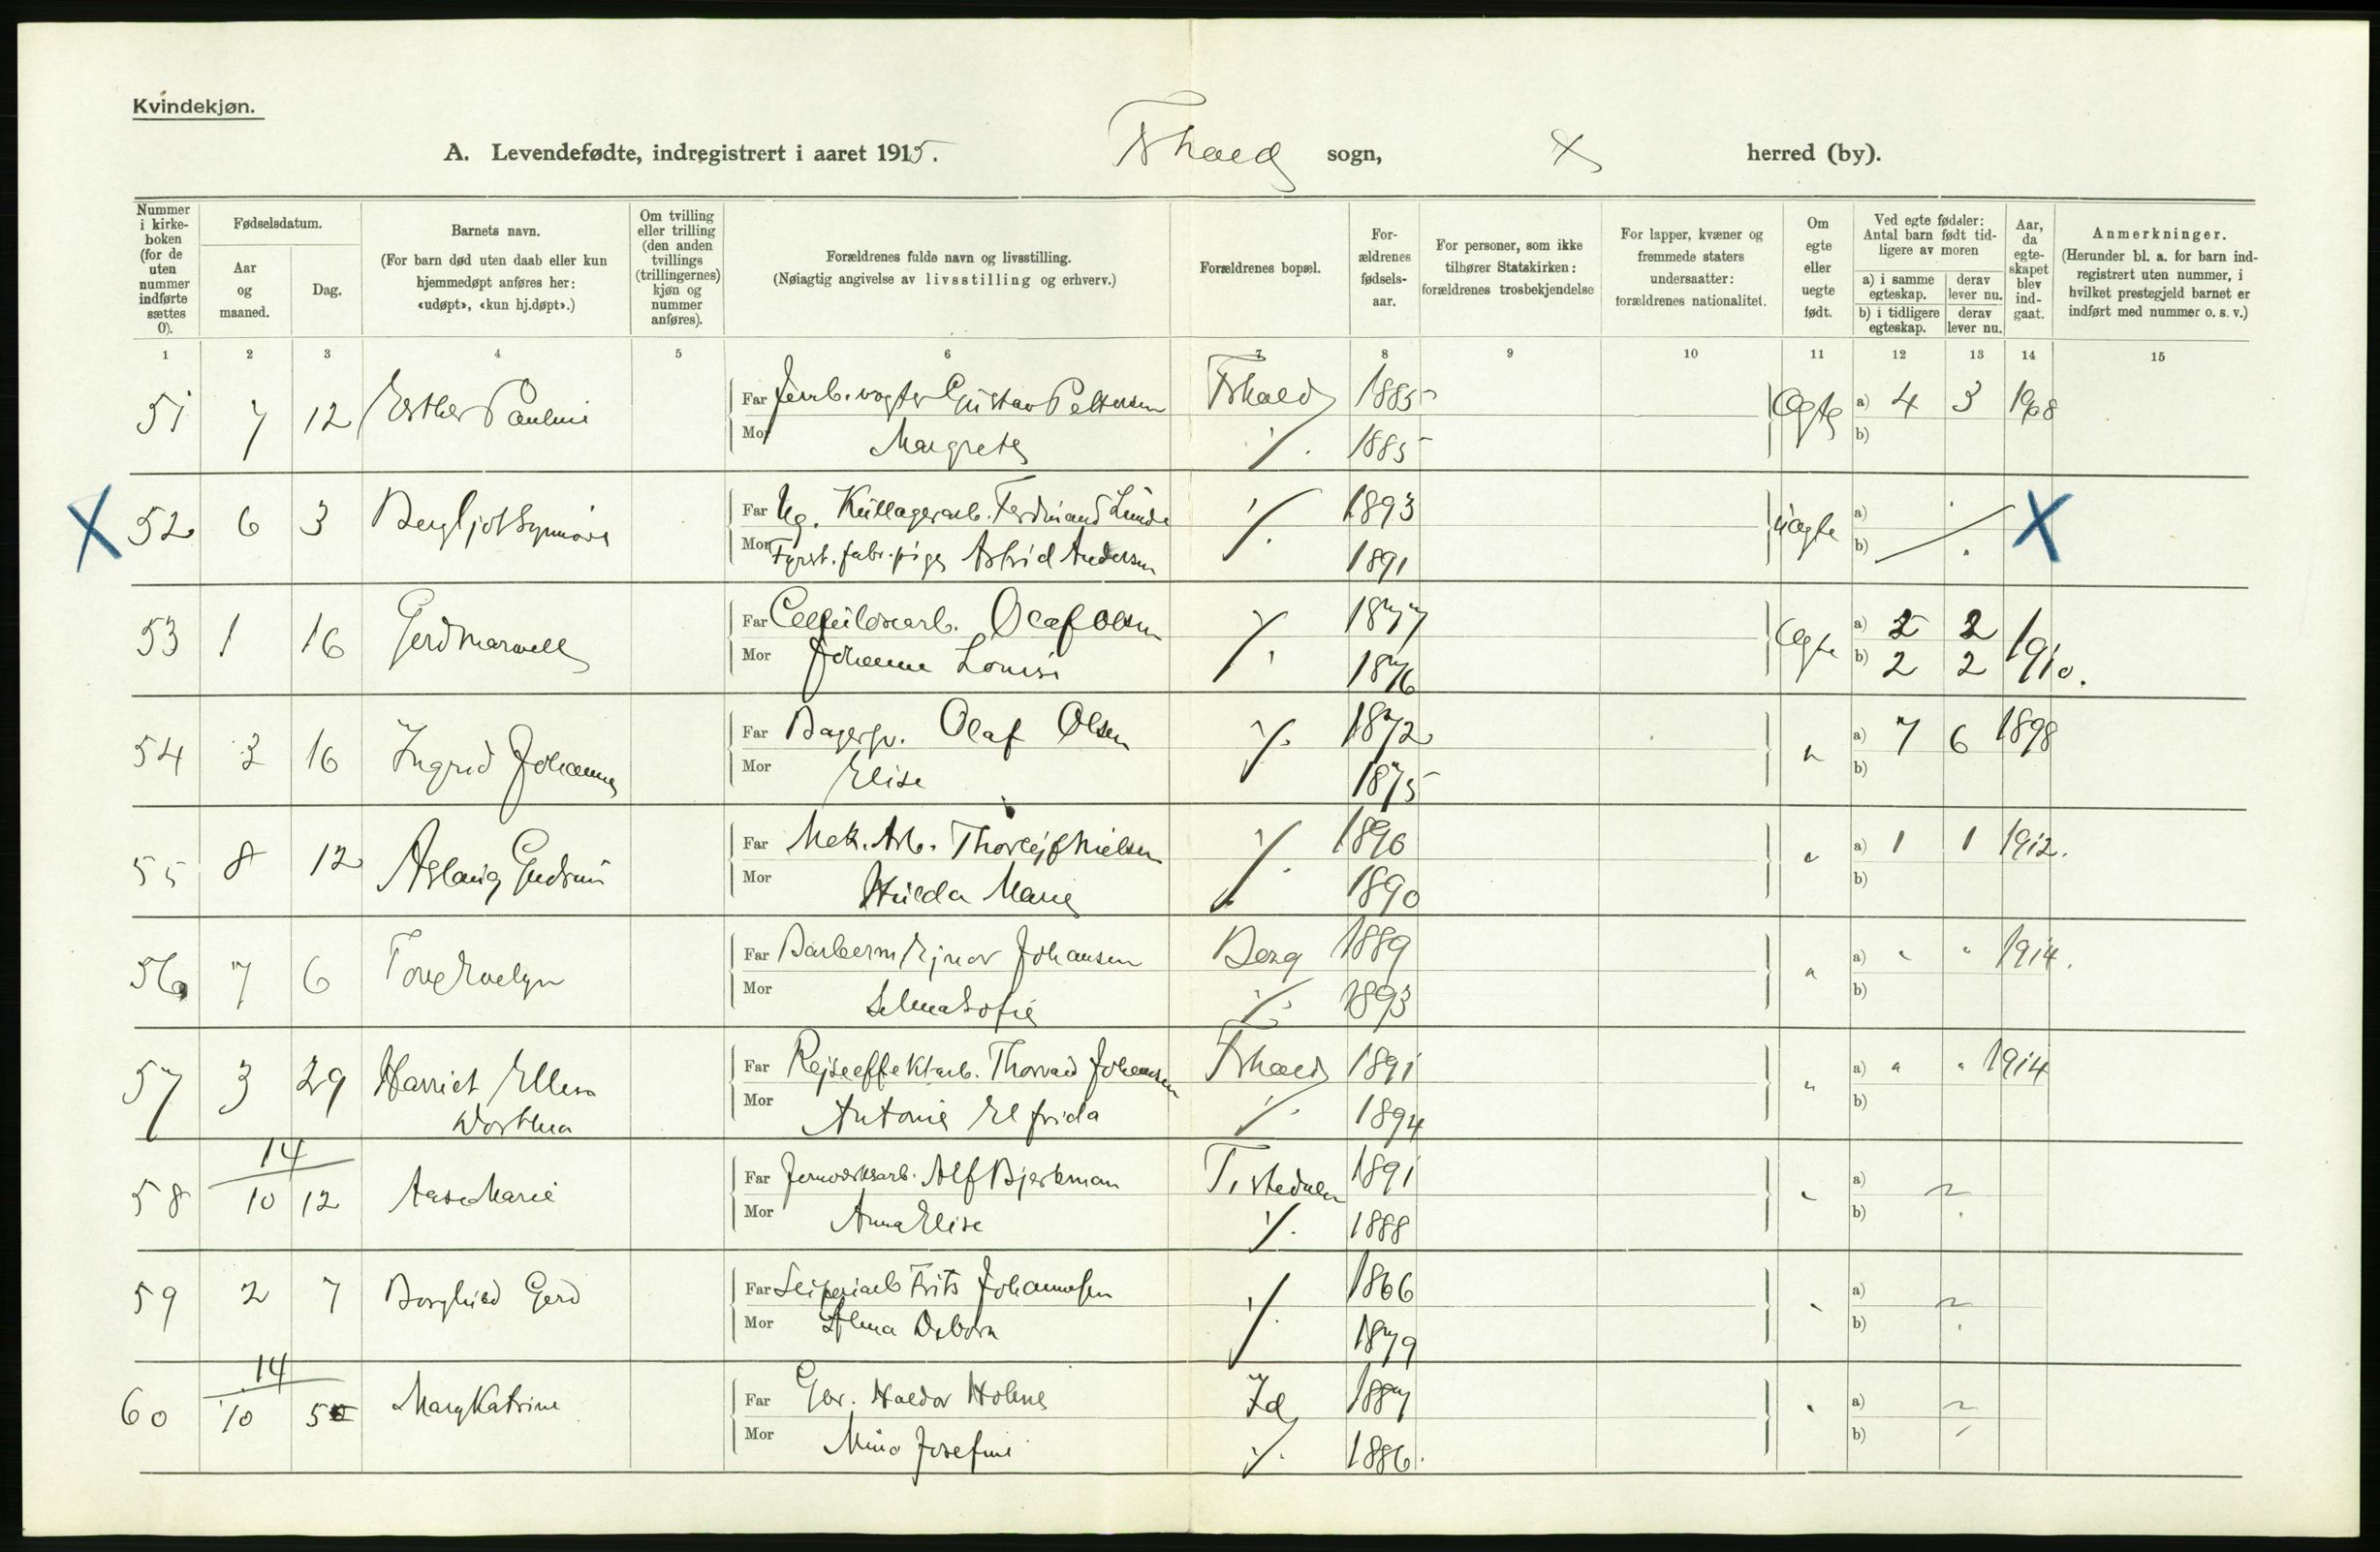 Kvindekjøn.
A. Levendefødte, indregistrert i aaret 1915. Fhald sogn, herred (by).
Nummer i kirkeboken (for de uten nummer indførte sættes 0).
Fødselsdatum.
Aar og maaned.
Dag.
Barnets navn.
(For barn død uten daab eller kun hjemmedøpt anføres her: «udøpt», «kun hj.døpt».)
Om tvilling eller trilling (den anden tvillings (trillingernes) kjøn og nummer anføres).
Forældrenes fulde navn og livsstilling.
(Nøiagtig angivelse av livsstilling og erhverv.)
Forældrenes bopæl.
Forældrenes fødselsaar.
For personer, som ikke tilhører Statskirken: forældrenes trosbekjendelse
For lapper, kvæner og fremmede staters undersaatter: forældrenes nationalitet.
Om egte eller uegte født.
Ved egte fødsler: Antal barn født tidligere av moren
a) i samme egteskap.
derav lever nu.
b) i tidligere egteskap.
derav lever nu.
Aar, da egteskapet blev indgaat.
Anmerkninger.
(Herunder bl. a. for barn indregistrert uten nummer, i hvilket prestegjeld barnet er indført med nummer o. s. v.)
1 2 3 4 5 6 7 8 9 10 11 12 13 14 15
51 7 12 Esther Pauline Far Jernb.vogter Gustav Pettersen Fhald 1885 Egte a) 4 3 1908
Mor Margrete ٪ 1885 b)
X 52 6 3 Bergljot Synnøve Far Ug. Kullagerarb. Ferdinand Lunde ٪ 1893 uegte a) X
Mor Fyrst.fabr.pige Astrid Andersen 1891 b)
53 1 16 Gerd Marwell Far Cellulosearb. Olaf Olsen ٪ 1877 Egte a) 2 2 1910.
Mor Johanne Lovise 1876 b) 2 2
54 3 16 Ingrid Johanne Far Bagersv. Olaf Olsen ٪ 1872 " a) 7 6 1898
Mor Elise 1875 b)
55 8 12 Aslaug Gudrun Far Mek. Arb. Thorleif Nielsen ٪ 1890 " a) 1 1 1912.
Mor Hulda Marie 1890 b)
56 7 6 Tove Evelyn Far Barberm Ejnar Johansen Berg 1889 " a) " " 1914.
Mor Selma Sofie ٪ 1893 b)
57 3 29 Harriet Ellen Far Rejseeffektarb. Thorvald Johansen Fhald 1891 " a) " " 1914
Mor Antonie Elfrida ٪ 1894 b)
14
58 10 12 Aase Marie Far Jernverksarb. Alf Bjerkman Tistedalen 1891 " a)
Mor Anna Elise ٪ 1888 b)
59 2 7 Borghild Gerd Far Frits Johannesen ٪ 1866 " a)
Mor Alma 1879 b)
14
60 10 5 Mary Katrine Far Gbr. Haldor Holme Id 1887 " a)
Mor Josefine ٪ 1886. b)